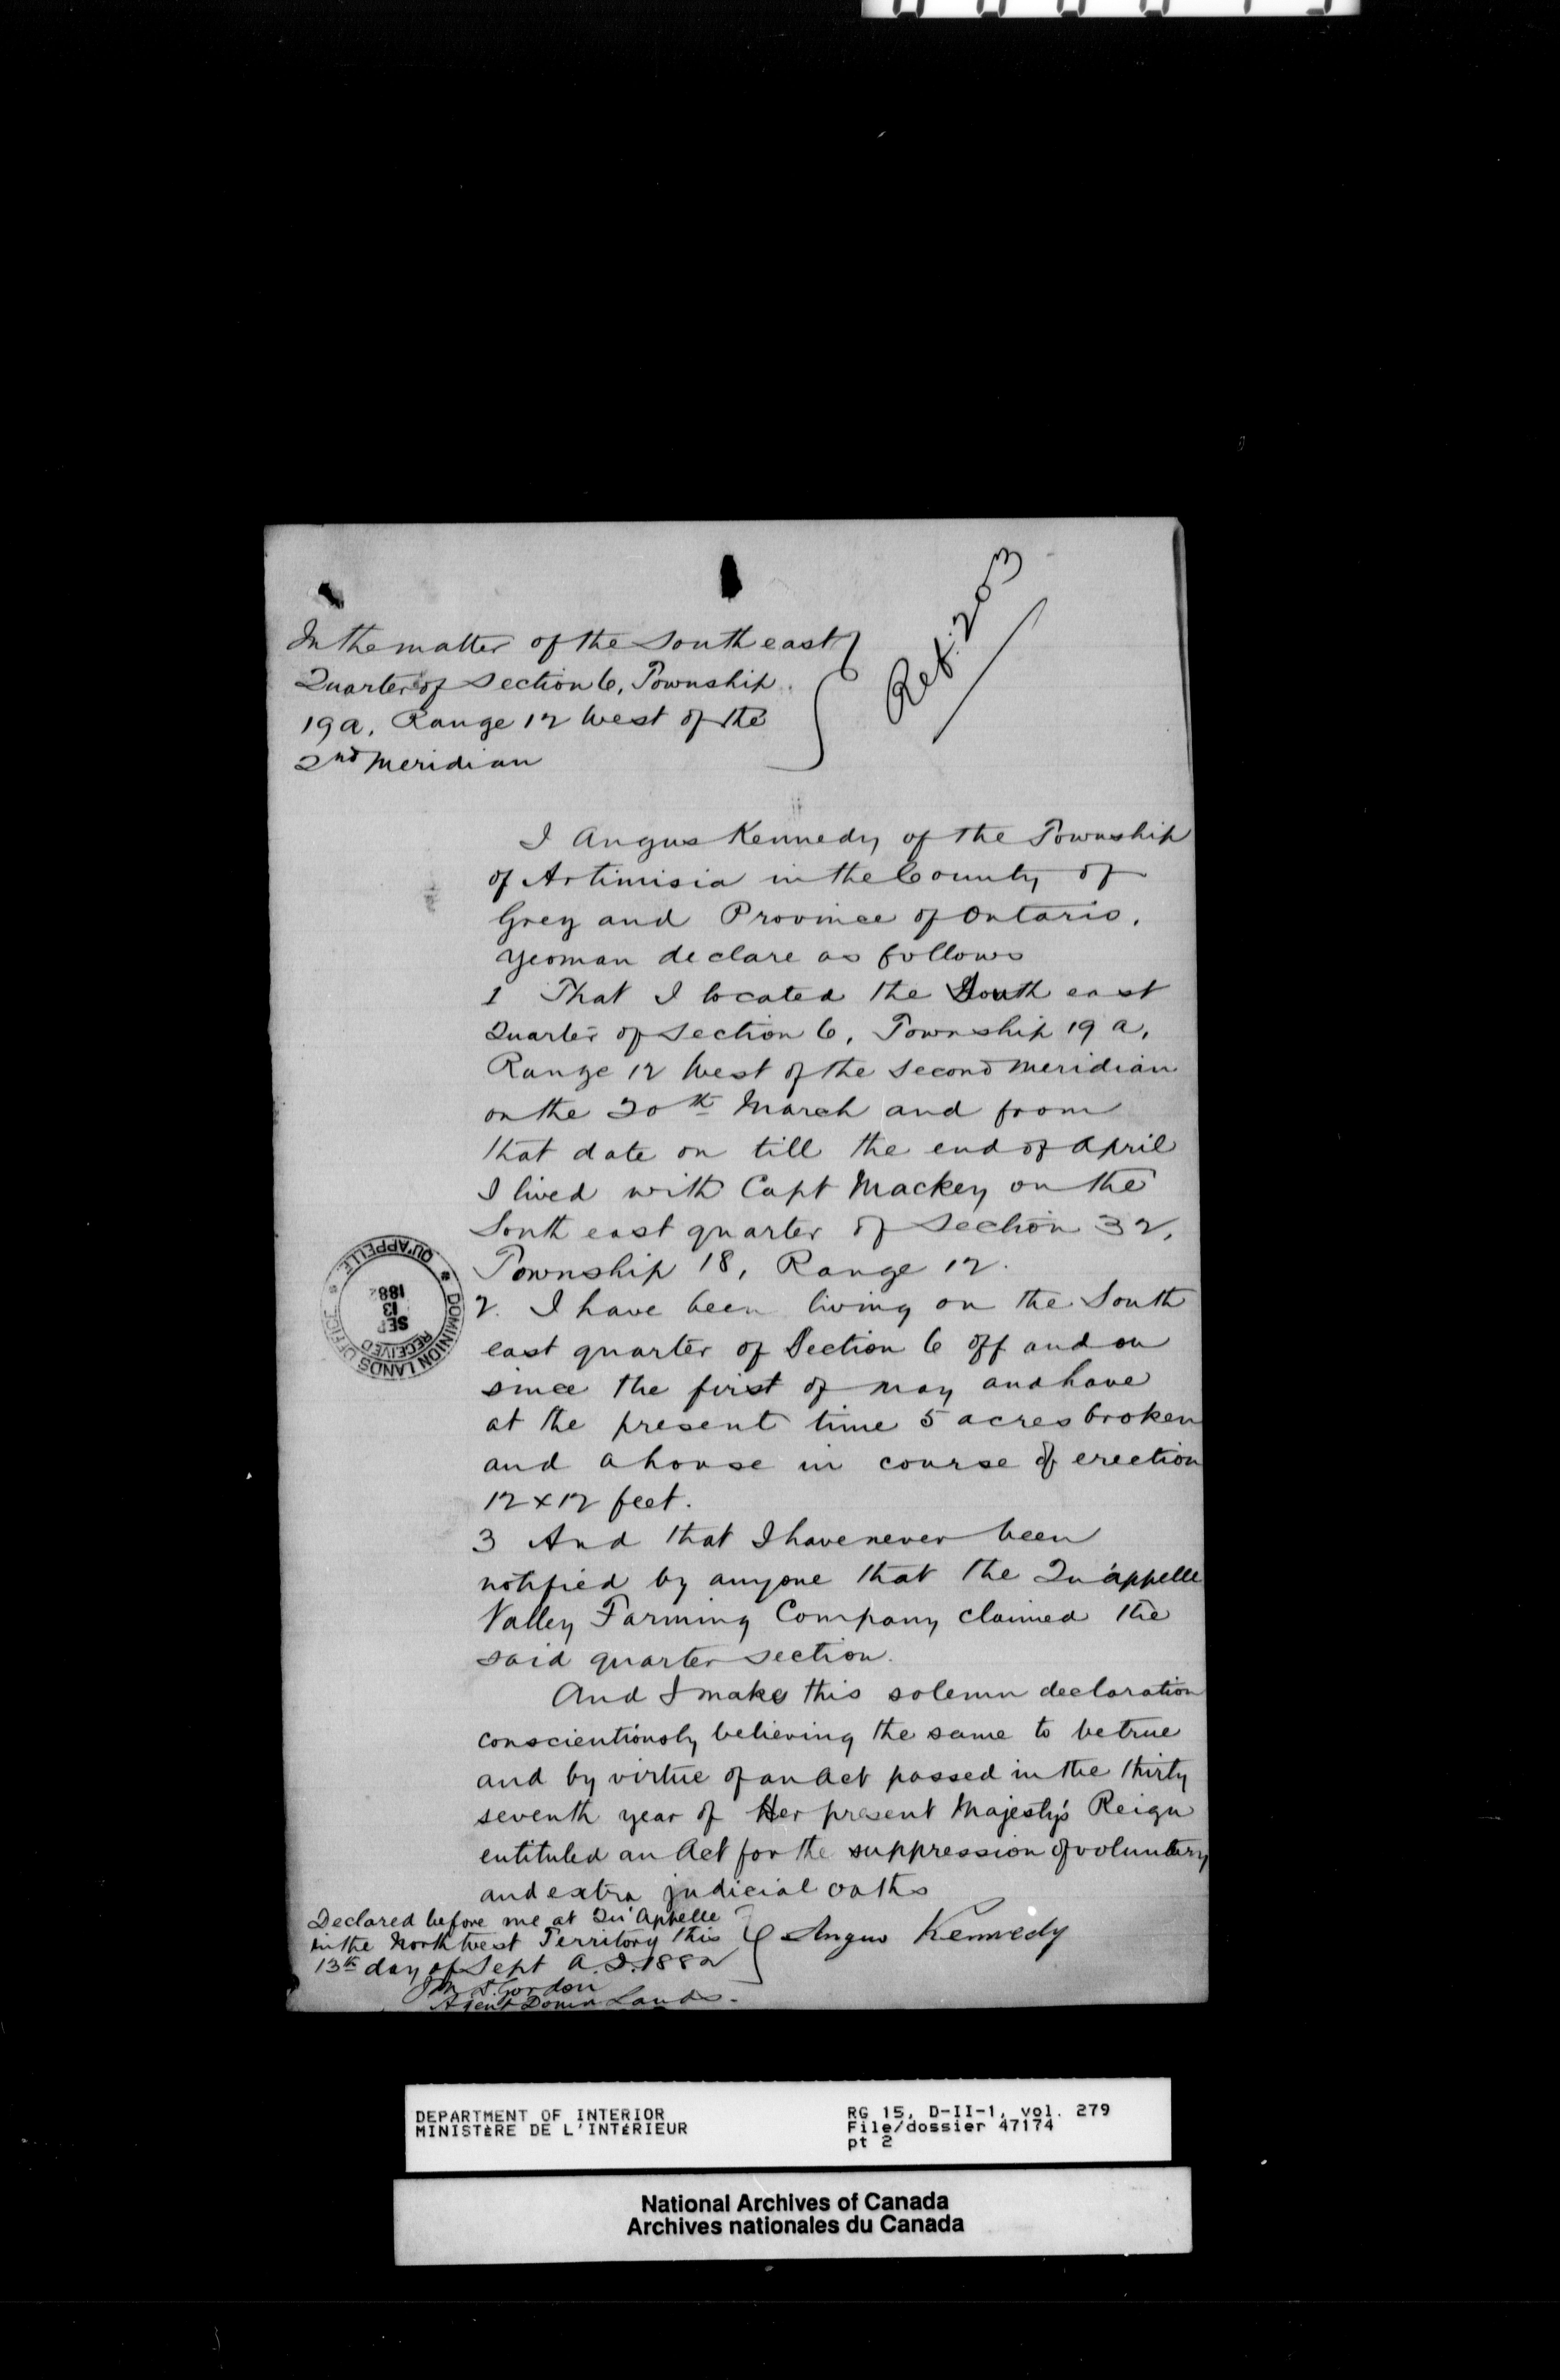 Ref. 203
In the matter of the South east
Quarter of Section 6, Township
19a, Range 12 West of the
2nd Meridian
I Angus Kennedy of the Township
of Artimisia in the County of
Grey and Province of Ontario,
Yeoman declare as follows
1 That I located the South east
Quarter of Section 6, Township 19 a,
Range 12 West of the Second Meridian
on the 20th March and from
that date on till the end of April
I lived with Capt Mackey on the
South east quarter of Section 32,
Township 18, Range 12.
2. I have been living on the South
east quarter of Section 6 off and on
since the first of May and have
at the present time 5 acres broken
and a house in course of erection
12 x 12 feet.
3 And that I have never been
notified by anyone that the Qu'appelle
Valley Farming Company claimed the
said quarter section.
And I make this solemn declaration
conscientiously believing the same to be true
and by virtue of an Act passed in the thirty
seventh year of Her present Majesty's Reign
entituled an Act for the suppression of voluntary
and extra judicial oaths
Declared before me at Qu'Appelle
in the North West Territory this
13th day of Sept A.D. 1882
Angus Kennedy
Gordon
Agent Domn Lands.
DOMINION LANDS OFFICE
QU'APPELLE
RECEIVED
SEP
13
1882
DEPARTMENT OF INTERIOR
MINISTÈRE DE L'INTÉRIEUR
RG 15, D-II-1, vol. 279
File/dossier 47174
pt 2
National Archives of Canada
Archives nationales du Canada